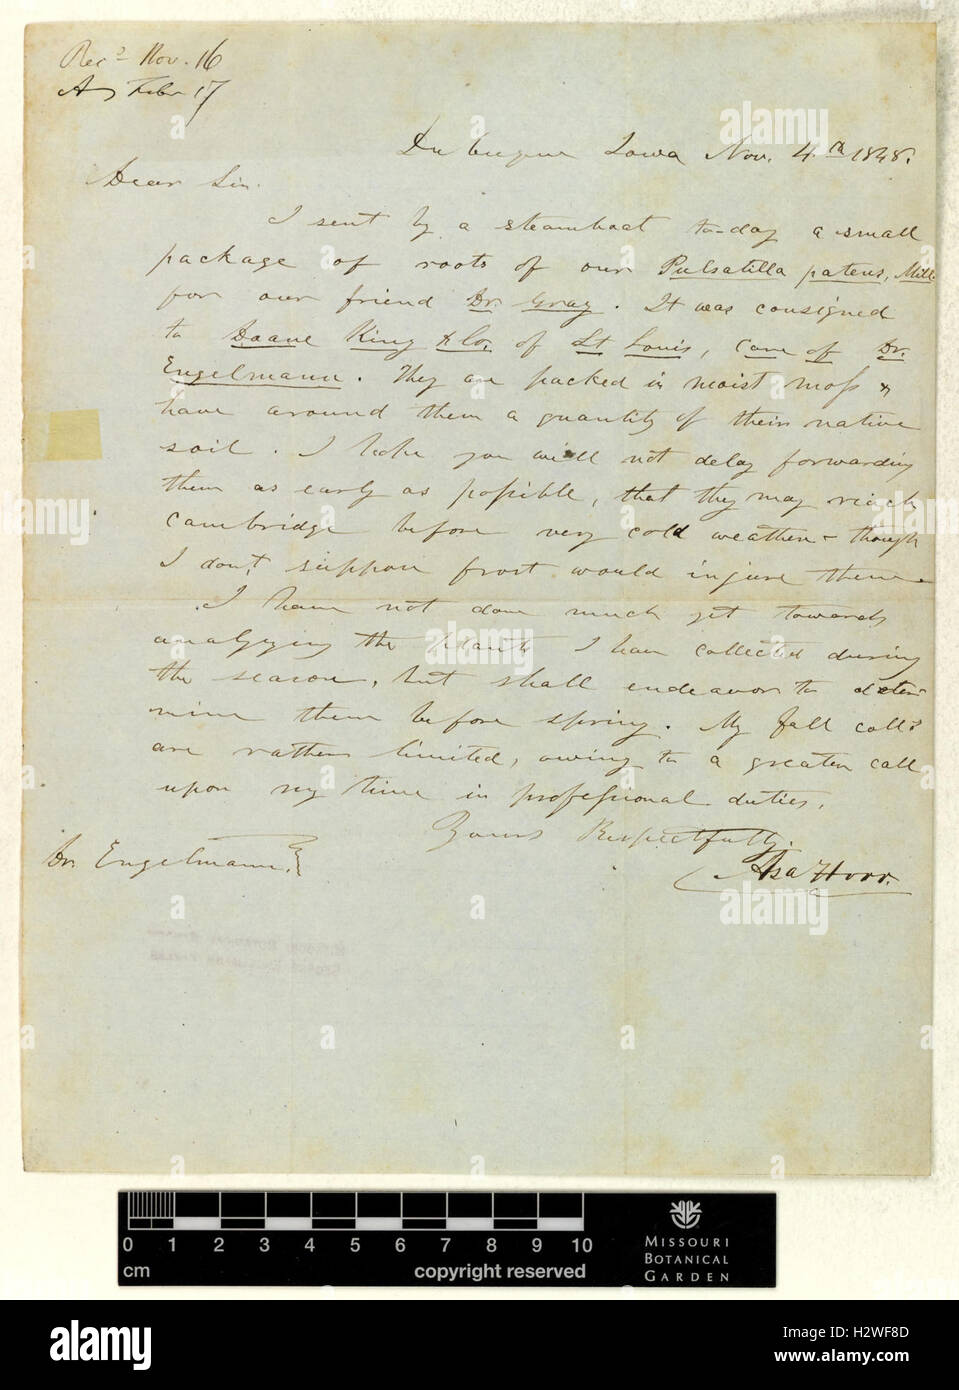 Recd Nov. 16
A, Febr 17
Dubuque Iowa Nov. 4th 1848.
Dear Sir.
I sent by a steamboat to-day a small
package of roots of our Pulsatilla patens, Mill
for our friend Dr. Gray. It was consigned
to Doane King & Co. of St Louis, Care of Dr.
Engelmann. They are packed in moist moss &
have around them a quantity of their native
soil. I hope you will not delay forwarding
them as early as possible, that they may reach
Cambridge before very cold weather - though
I dont suppose frost would injure them -
I have not done much yet towards
analyzing the plants I have collected during
the season, but shall endeavor to deter-
mine them before spring. My fall colls
are rather limited, owing to a greater call
upon my time in professional duties.
Yours Respectfully.
Asa Horr.
Dr. Engelmann.
0 1 2 3 4 5 6 7 8 9 10
cm
copyright reserved
MISSOURI
BOTANICAL
GARDEN
alamy
alamy stock photo
H2WF8D
www.alamy.com